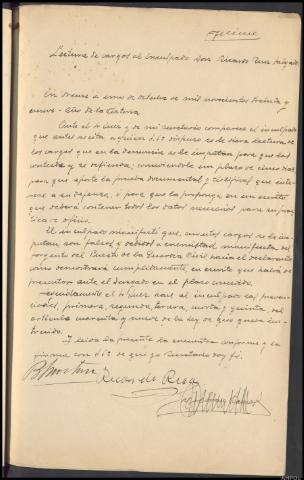 Lectura de cargos al inculpado Don Ricardo Ruz
En Orense a once de octubre de mil novecientos treinta y
nueve - Año de la Victoria
Ante el Sr. Juez y de mi Secretario comparece el inculpado
que antes se cita, a quien S.Sª dispuso se le diera lectura de
los cargos que en la denuncia se le imputan para que los
conteste y se defienda; concediéndole un plazo de cinco días
para que aporte la prueba documental y testifical que inte-
rese a su defensa, o para que la proponga en un escrito
que deberá contener todos los datos necesarios para su prác-
tica de oficio.
El inculpado manifestó que cuantos cargos se le im-
putan son falsos y debidos a enemistad manifiesta del
sargento del Puesto de la Guardia Civil hacia el declarante
como demostrará cumplidamente en escrito que habrá de
presentar ante el Juzgado en el plazo concedido.
Seguidamente el Sr. Juez hace al inculpado las preven-
ciones, primera, segunda, tercera, cuarta y quinta, del
artículo cuarenta y nueve de la ley de que queda ins-
truido.
Y leída la presente la encuentra conforme y la
firma con S.Sª de que yo Secretario doy fé.
Ricardo